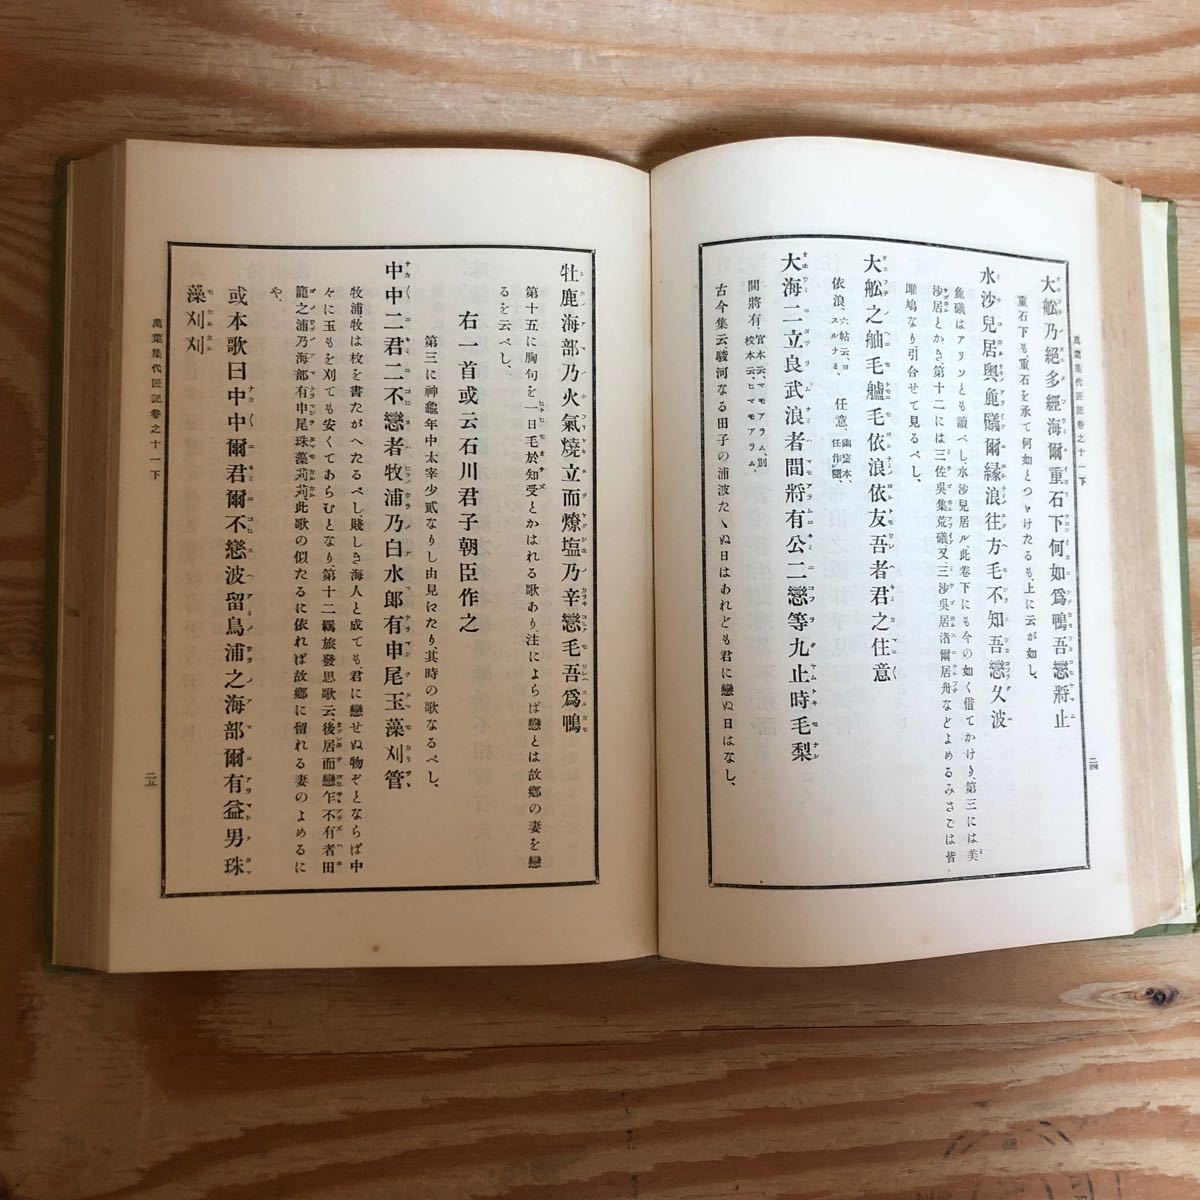 萬葉集代匠記卷之十一下
二四
大舩乃絕多經海爾重石下何如爲鴨吾戀將止
重石下も重石を承て何如とつゝけたるも、上に云が如し、
水沙兒居奧麁礒爾縁浪往方毛不知吾戀久波
麁礒はアリソとも讀べし、水沙兒居ル、此卷下にも今の如く借てかけり、第三には美
沙居とかき第十二には三佐吳集荒礒又、三沙吳居渚爾居舟などよめるみさごは皆
雎鳩なり引合せて見るべし、
大舩之舳毛艫毛依浪依友吾者君之任意
依浪、六帖云、ヨスルナミ、 任意、幽齋本、任作隨、
大海二立良武浪者間將有公二戀等九止時毛梨
間將有、官本云、マモアラム、別校本云、ヒマモアラム、
古今集云、駿河なる田子の浦波たゝぬ日はあれども君に戀ぬ日はなし、
牡鹿海部乃火氣燒立而燎塩乃辛戀毛吾爲鴨
第十五に胸句を一日毛於知受とかはれる歌あり、注によらば戀とは故鄉の妻を戀
るを云べし、
右一首或云石川君子朝臣作之
第三に神龜年中太宰少貳なりし由見にたり、其時の歌なるべし、
中中二君二不戀者牧浦乃白水郎有申尾玉藻刈管
牧浦牧は枚を書たがへたるべし、賤しき海人と成ても、君に戀せぬ物ぞとならば中
々に玉もを刈ても安くてあらむとなり、第十二羈旅發思歌云、後居而戀乍不有者田
籠之浦乃海部有申尾珠藻苅苅此歌の似たるに依れば故鄉に留れる妻のよめるに
や、
或本歌曰中中爾君爾不戀波留鳥浦之海部爾有益男珠
藻刈刈
萬葉集代匠記卷之十一下
二五